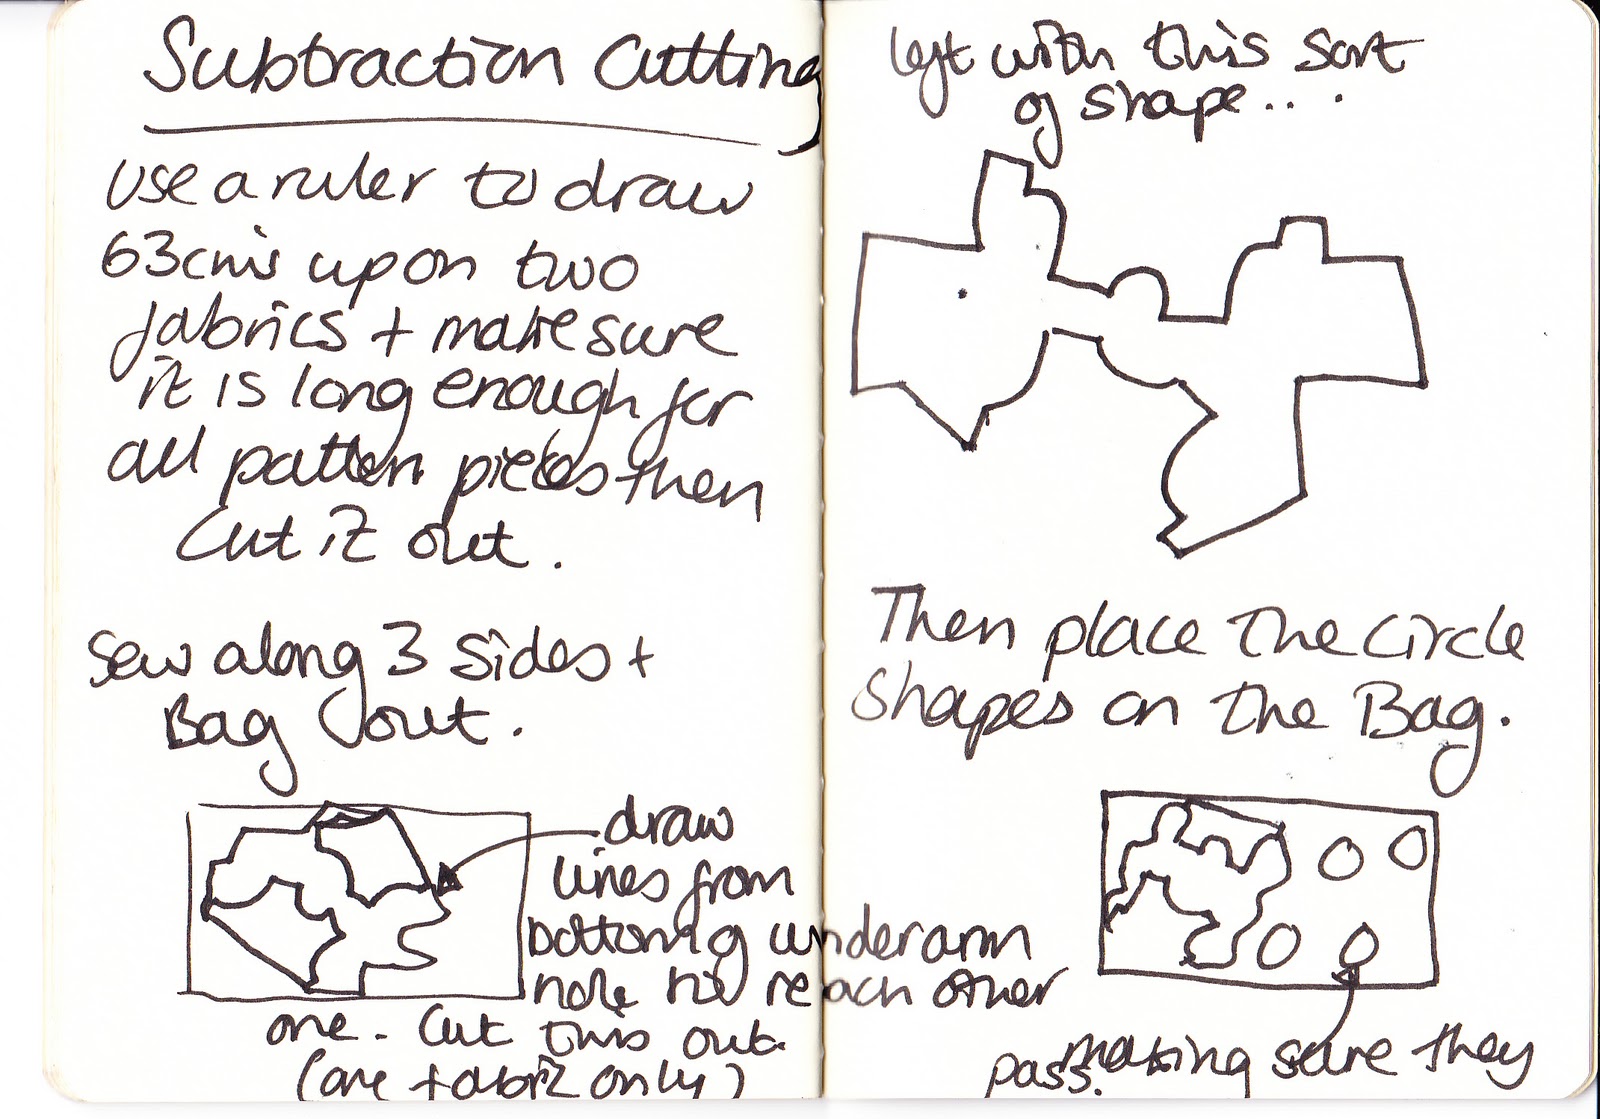 Subtraction Cutting
Use a ruler to draw
63cm's up on two
fabrics + make sure
it is long enough for
all pattern pieces then
Cut it out.
Sew along 3 sides +
Bag out.
draw
lines from
bottom of underarm
hole to reach other
one. Cut this out.
(one fabric only)
left with this sort
of shape....
Then place the circle
shapes on the Bag.
making sure they
pass.